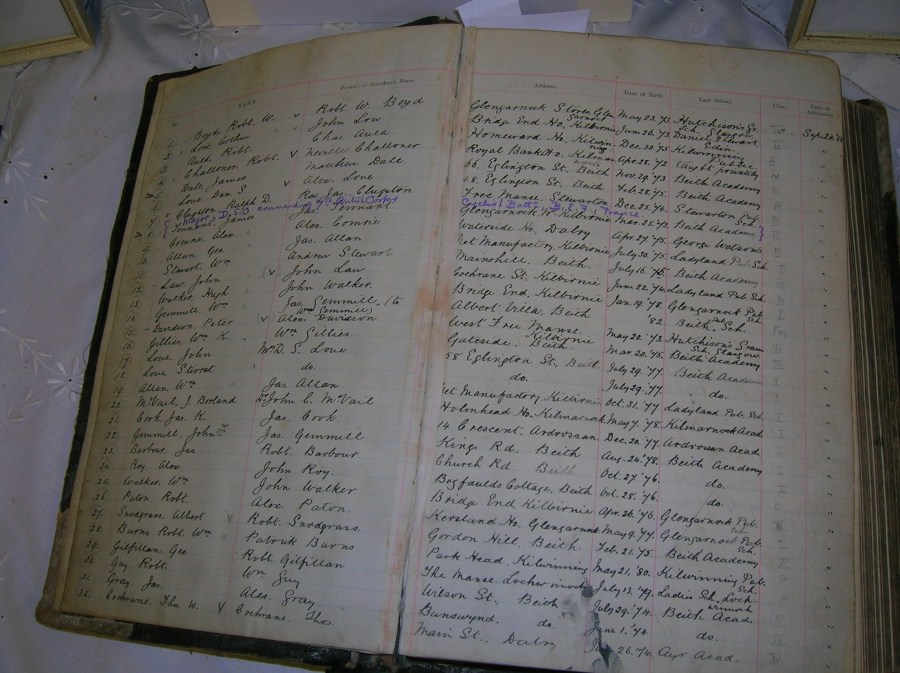 NAME Parent's or Guardian's Name. Address. Date of Birth. Last School. Class. Date of Admission.
1. Boyd, Robt. W. Robt. W. Boyd Glengarnock Stores, May 23. '73 Hutchison's Gr. Sch. Glasgow
2. Low, John Low Bridge End Ho, Kilbirnie June 26. '73 Daniel Stewart's Edin.
3. Auld Robt. Chas. Auld Homeward Ho, Dec. 30. '73 Kilwinning Public
4. Challoner Robt. Neville Challoner Royal Bank Ho, Apr. 28. '72 Taught privately
5. Dale James Matthew Dale 66 Eglington St. Beith Nov. 29. '73 Beith Academy
6. Love Dan S. Alex. Love 48 Eglington St. Beith Feb. 28. '75 Beith Academy
7. Clugston Ralph D. Rev. Jas. Clugston Free Manse, Stewarton Dec. 25. '74 Stewarton Pub. Sch.
Major, D.S.O. commanding Cyclist Batt. B.E.F., France
8. Tennant James Jas. Tennant Glengarnock Kilbirnie Mar. 25. '73 Beith Academy
9. Comrie Alex Alex. Comrie Waterside Ho, Dalry Apr. 27. '75 George Watson's
10. Allan Geo. Jas. Allan Net Manufactory, Kilbirnie July 30. '75 Ladyland Pub. Sch.
11. Stewart, Wm. Andrew Stewart Mainshill, Beith July 16. '75 Beith Academy
12. Law, John John Law Cochrane St. Kilbirnie June 22. '74 Ladyland Pub. Sch.
13. Walker, Hugh John Walker Bridge End, Kilbirnie Jan. 19. '78 Glengarnock Pub. Sch.
14. Gemmill, Wm. Jas. Gemmill (to Wm. Gemmill) Albert Villa, Beith '82 Beith, Sch.
15. Davidson, Peter Alex. Davidson West Free Manse, Kilbirnie May 22. '73 Hutchison's Gram. Sch. Glasgow
16. Gillies Wm. K. Wm. Gillies Gateside, Beith Mar. 20. '75 Beith Academy
17. Love John Mr D. S. Love 58 Eglington St, Beith July 29. '77 Beith Academy
18. Love Stewart do. do. July 29. '77 do.
19. Allan Wm. Jas Allan Net Manufactory Kilbirnie Oct. 31. '77 Ladyland Pub. Sch.
20. McVail, J. Borland John C. McVail Holmhead Ho, Kilmarnock May 7. '78 Kilmarnock Acad
21. Cook, Jas. K. Jas. Cook 14 Crescent, Ardrossan Dec. 20. '77 Ardrossan Acad.
22. Gemmill, John Jas. Gemmill Kings Rd, Beith Aug. 24. '78 Beith Academy
23. Barbour, Jas Robt. Barbour Church Rd. Beith Oct. 27. '76 do.
24. Roy, Alex John Roy. Bogfaulds Cottage, Beith Oct. 28. '76 do.
25. Walker, Wm. John Walker Bridge End Kilbirnie Apr. 26. '76 Glengarnock Pub.
26. Paton, Robt. Alex. Paton. Kersland Ho, Glengarnock May 9. '74 Glengarnock Pub. Sch.
27. Snodgrass, Albert Robt. Snodgrass. Gordon Hill, Beith Feb. 21. '75 Beith Academy
28. Burns Robt. Wm. Patrick Burns Park Head, Kilwinning May 21. '80 Kilwinning Pub. Sch.
29. Gilfillan, Geo Robt. Gilfillan The Manse, Lochwinnoch July 13. '79 Ladies Sch. Lochwinnoch
30. Guy Robt. Wm. Guy Wilson St, Beith July 29. '74 Beith Acad.
31. Gray, Jas. Alex. Gray Bunswynd, do. June 1. '74 do.
32. Cochrane, Thos. W. Cochrane, Tho. Main St., Dalry 26. '74 Ayr Acad.